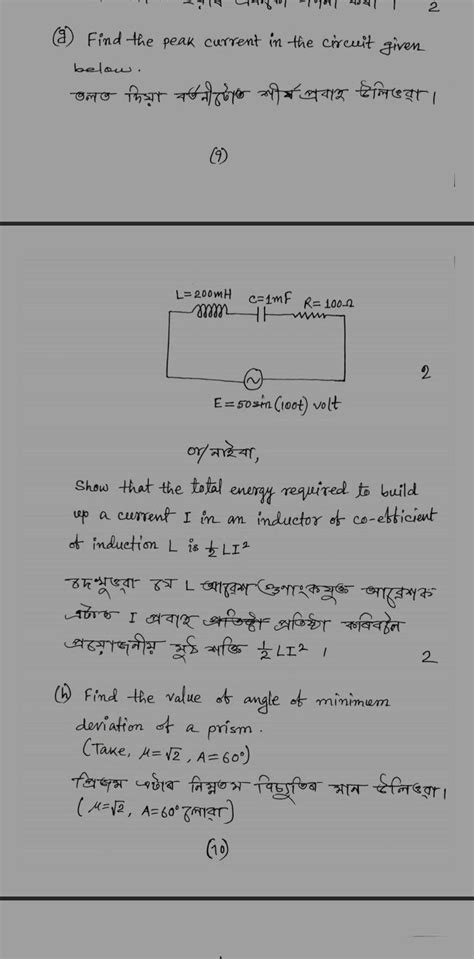 2
(g) Find the peak current in the circuit given
below.
তলত দিয়া বৰ্তনীটোত শীৰ্ষ প্ৰবাহ উলিওৱা।
(9)
L=200mH C=1mF R=100Ω
2
E=50sin(100t) volt
or/নাইবা,
Show that the total energy required to build
up a current I in an inductor of co-efficient
of induction L is ½LI²
দেখুওৱা যে L আৱেশ গুণাংকযুক্ত আৱেশক
এটাত I প্ৰবাহ প্ৰতিষ্ঠা কৰিবলৈ
প্ৰয়োজনীয় মুঠ শক্তি ½LI² ।
2
(h) Find the value of angle of minimum
deviation of a prism.
(Take, μ=√2, A=60°)
প্ৰিজম এটাৰ নিম্নতম বিচ্যুতিৰ মান উলিওৱা।
(μ=√2, A=60° লোৱা)
(10)